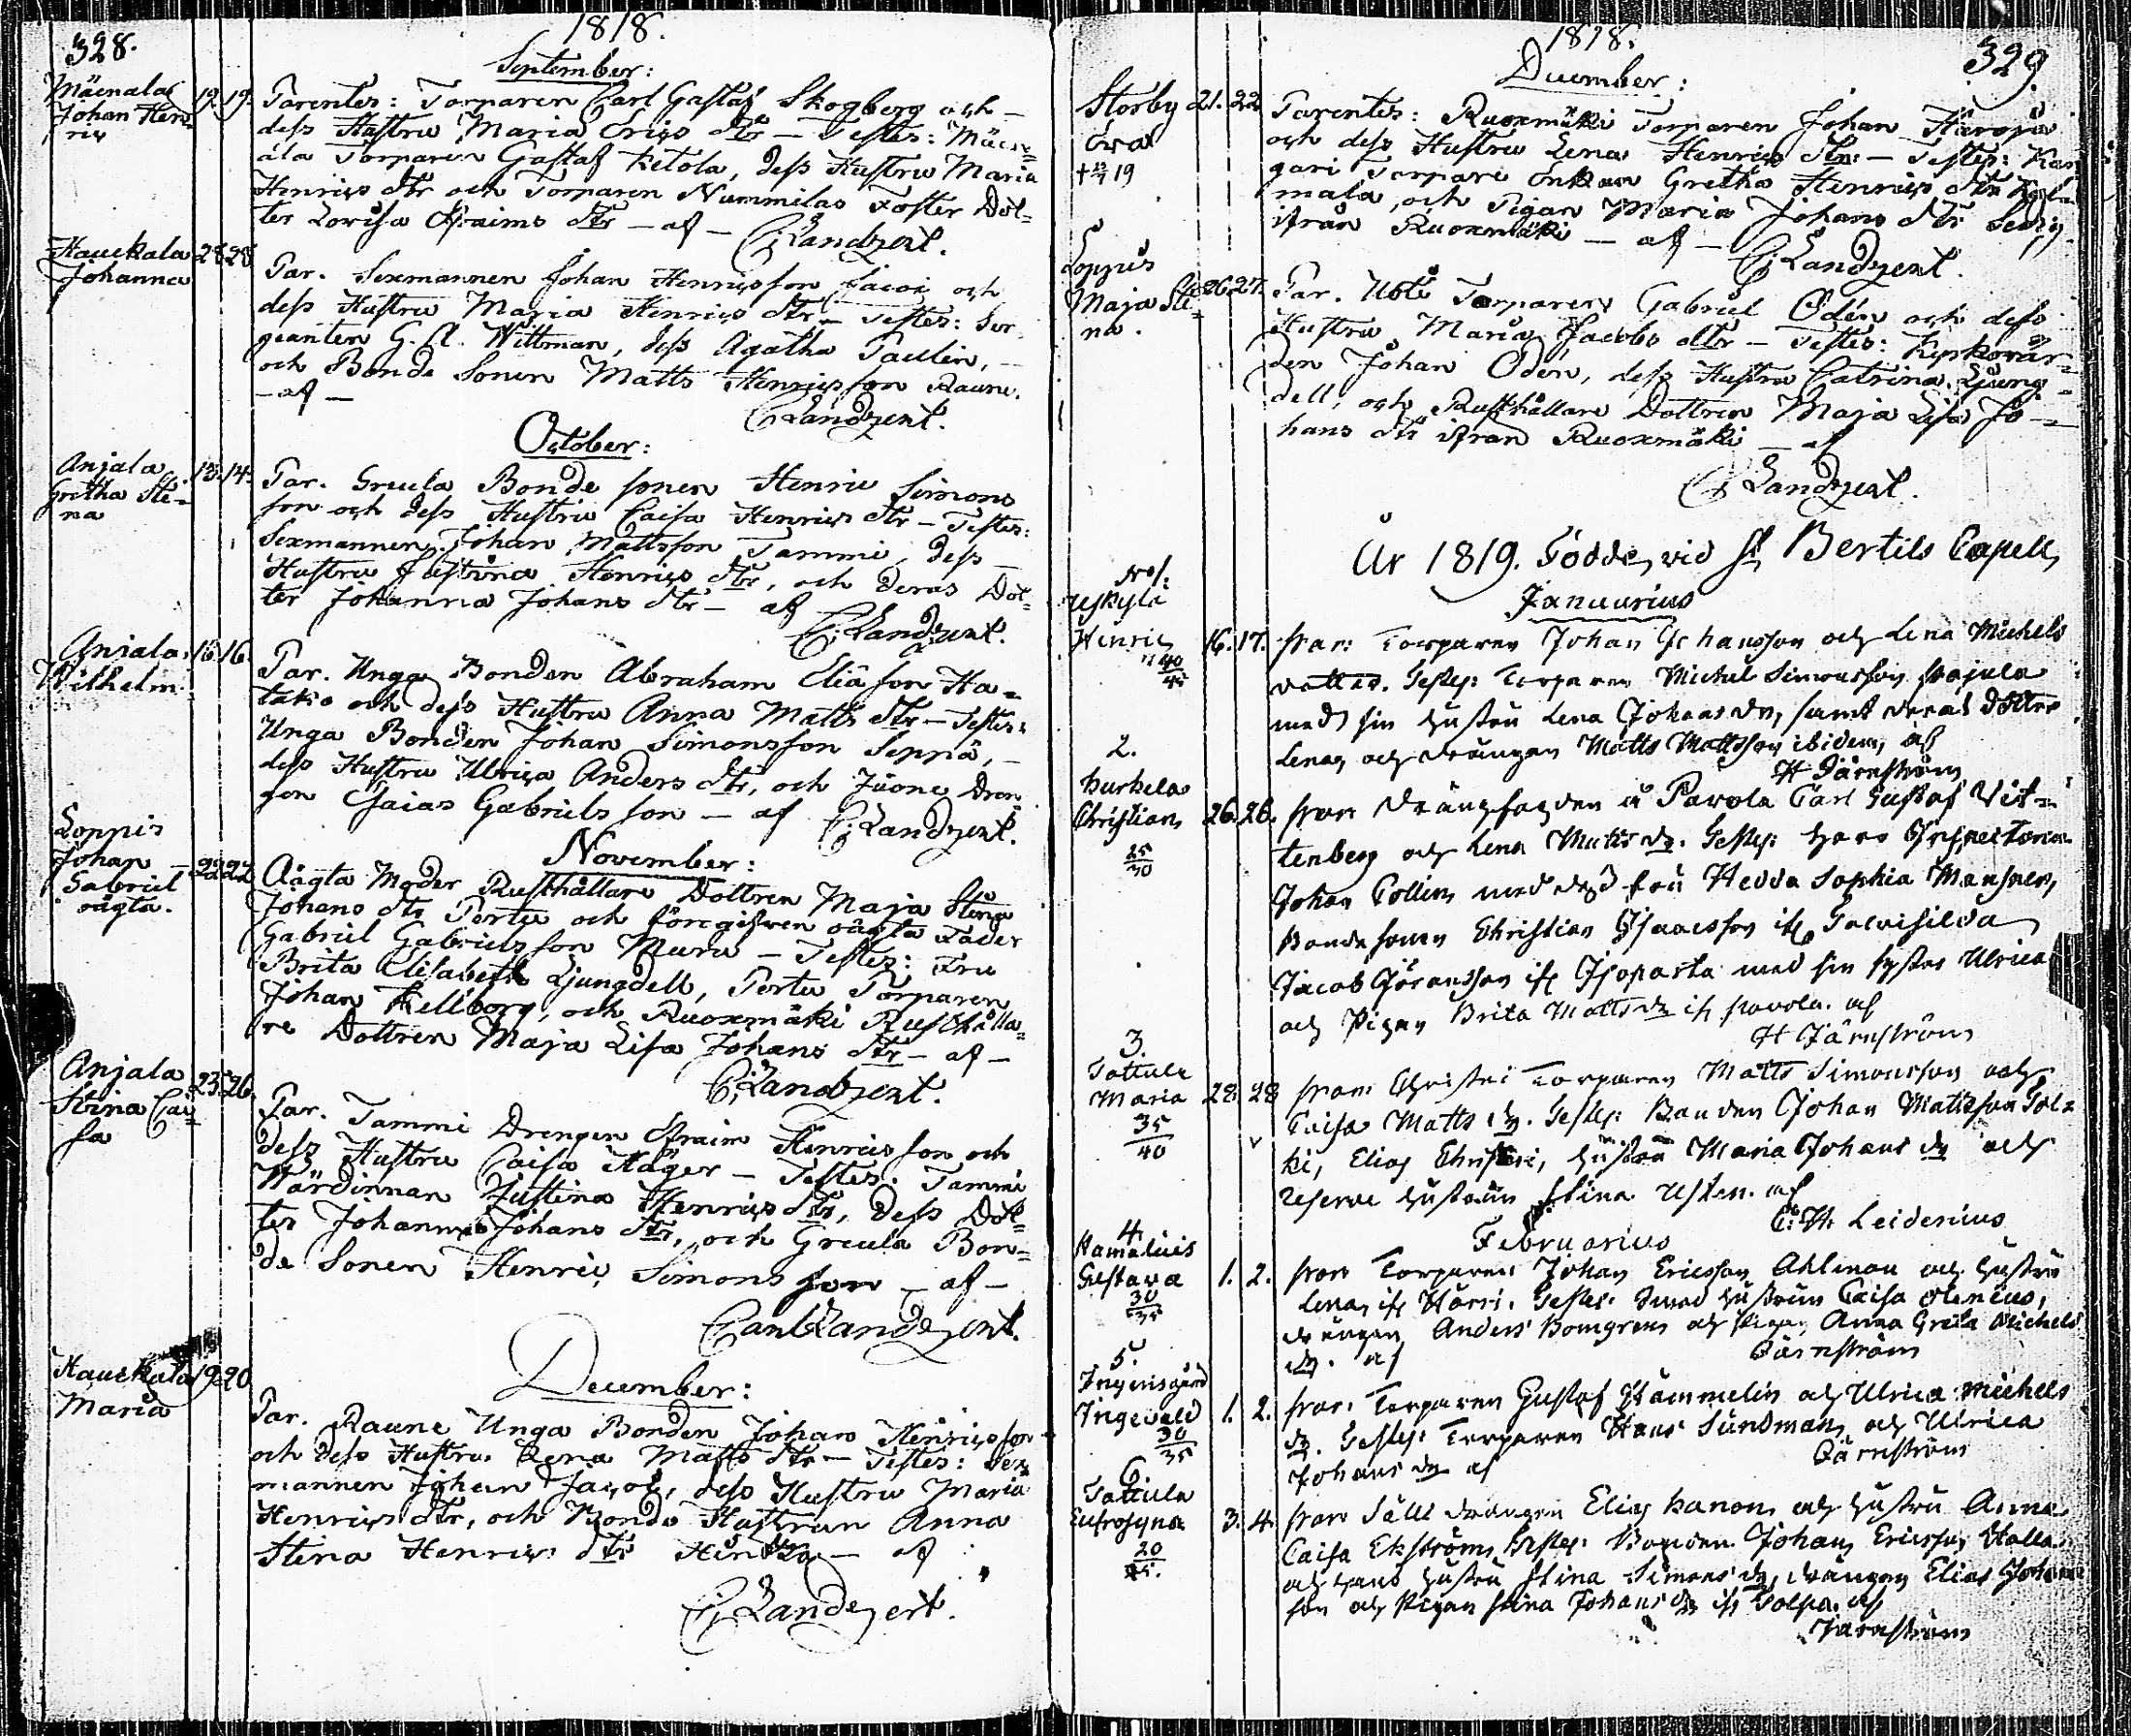 328.
1818.
September:
Mäenala
Johan Hen=
ric
19. 19.
Parentes: Torparen Carl Gustaf Skogberg och
dess Hustru Maria Erics dtr – Testes: Mäen=
ala Torparen Gustaf Ketola, dess Hustru Maria
Henrics dtr och Torparen Nummilas Foster Dot=
ter Lovisa Efraims dtr – af – C: Landzert.
Hauckala
Johanna
28 28
Par. Sexmannen Johan Henricsson och
dess Hustru Maria Henrics dtr – Testes: Ser
geanten G. A. Wittman, dess Agatha Paulin,
och Bonde Sonen Matts Henricsson Raune.
– af –
C Landzert.
October:
Anjala
Gretha Sti=
na
13. 14.
Par. Grecula Bonde sonen Henric Simons
son och dess Hustru Caisa Henrics dtr – Testes:
Sexmannen Johan Mattsson Tammi, dess
Hustru Justina Henrics dtr, och deras Dot=
ter Johanna Johans dtr – af
C: Landzert.
Anjala
Wilhelm
15 16.
Par. Unga Bonden Abraham Elia son Ha=
tako och dess Hustru Anna Matts dtr – Testes:
Unga Bonden Johan Simonsson Seppä, –
dess Hustru Ulrica Anders dtr, och Dren
gen Esaias Gabriels son – af C: Landzert.
November:
Loppis
Johan –
Gabriel
oägta.
22 22
Oägta Moder Rusthållare Dottren Maja Stina
Johans dtr Perttu och föregifven oägta Fader
Gabriel Gabriels son Muru – Testes: Fru
Brita Elisabeth Ljungdell, Perttu Torparen
Johan Hellborg, och Ruoxmäki Rusthålla=
re Dottren Maja Lisa Johans dtr – af –
C: Landzert.
Anjala
Stina Cai=
sa
25. 26.
Par. Tammi Drengen Efraim Henrics son och
dess Hustru Caisa Häger – Testes: Tammi
Wärdinnan Justina Henrics dtr, dess Dot=
ter Johanna Johans dtr, och Grecula Bon=
de Sonen Henric Simons son – af –
Carl Landzert.
December:
Hauckala
Maria
19. 20
Par. Raune Unga Bonden Johan Henricsson
och dess Hustru Lena Matts dtr – Testes: Sex
mannen Johan, dess Hustru Maria
Henrics dtr, och Bonde Hustrun Anna
Stina Henrics dtr – af
C: Landzert.
1818.
329.
December:
Storby
Eva
21. 22
Parentes: Ruoxmäki Torparen Johan
och dess Hustru Lena Henrics dtr – Testes: Kan
gari Torpare Enkan Gretha Henrics dtr
mala, och Pigan Maria Johans dtr
ifrån Ruoxmäki – af –
C: Landzert.
Loppis
Maja Sti=
na.
26. 27.
Par. Torparen Gabriel Odén och dess
Hustru Maria Jacobs dtr – Testes: Kyrkovär=
den Johan Odén, dess Hustru Catrina Ljung=
dell, och Rusthållare Dottren Maja Lisa Jo=
hans dtr ifrån Ruoxmäki – af
C: Landzert.
År 1819. Födde vid St Bertils Capell
Januarius
No 1.
Uskylä
Henric
40
45
16. 17.
Par: Torparen Johan Johansson och Lena Michels
dotter. Testes: Torparen Michel Simonsson Pajula
med sin hustru Lena Johans dr, samt deras dotter
Lena och drängen Matts Mattsson ibidem, af
H Järnström
2.
Hurkela
Christian
25
30
26. 26.
Par: Drängfogden å Pavola Carl Gustaf Vit=
tenberg och Lena Matts dr. Testes: Herr Inspectoren
Johan Collin med dess fru Hedda Sophia Mansner,
Bondesonen Christian Isaacsson ifr
Jacob Göransson ifr Isoparta med sin syster Ulrica
och Pigan Brita Matts dr ifr Pavola. af
H Järnström
3.
Tattula
Maria
35
40
28. 28
Par: Christei Torparen Matts Simonsson och
Caisa Matts dr. Testes: Bonden Johan Mattsson Tol=
ki, Elias Christei, hustru Maria Johans dr och
reserve hustrun Stina Usten. af
C. H. Leidenius
Februarius
4.
Hamaluis
Gustava
30
35
1. 2.
Par: Torparen Johan Ericsson Ahlman och hustru
Lena ifr Härri. Testes: hustrun Caisa Olenius,
drängen Anders Bomgren och Pigan Anna Greta Michels
dr. af
Järnström
5.
Ingerisgård
Ingevald
30
35
1. 2.
Par: Torparen Gustaf Hammelin och Ulrica Michels
dr. Testes: Torparen Hans Sundman, och Ulrica
Johans dr af
Järnström
6.
Tattula
Eufrosyna
20
25.
3. 4.
Par: Sälli drängen Elias Kanon och hustru Anna
Caisa Ekström. Testes: Bonden Johan Ericsson Stalla
och hans hustru Stina Simons dr, drängen Elias Johans
son och Pigan Stina Johans dr ifr Tolpa. af
Järnström